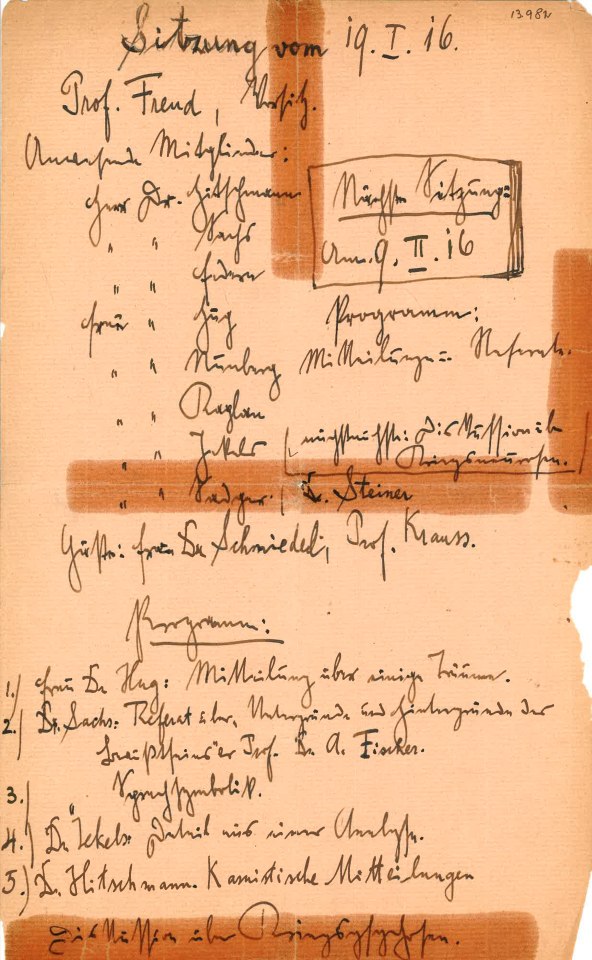 13.982
Sitzung vom 19. I. 16.
Prof. Freud, Vorsitz.
Anwesende Mitglieder:
Herr Dr. Hitschmann
" " Sachs
" " Federn
Frau " Hug
" " Nunberg
" " Raglan
" " Jekels
" " Sadger, Dr. Steiner
Nächste Sitzung:
Am 9. II. 16
Programm:
Mitteilungen u. Referate.
nächstnächste: Diskussion üb
Kriegsneurosen.
Gäste: Frau Dr Schmiedel, Prof. Krauss.
Programm:
1.) Frau Dr. Hug: Mitteilung über einige Träume.
2.) Dr. Sachs: Referat über, Untergründe und Hintergründe des
Bewußtseins" Prof. Dr. A. Fischer.
3.) Sprachsymbolik.
4.) Dr. Jekels: Detail aus einer Analyse.
5.) Dr. Hitschmann. Kasuistische Mitteilungen
Diskussion über Kriegspsychosen.